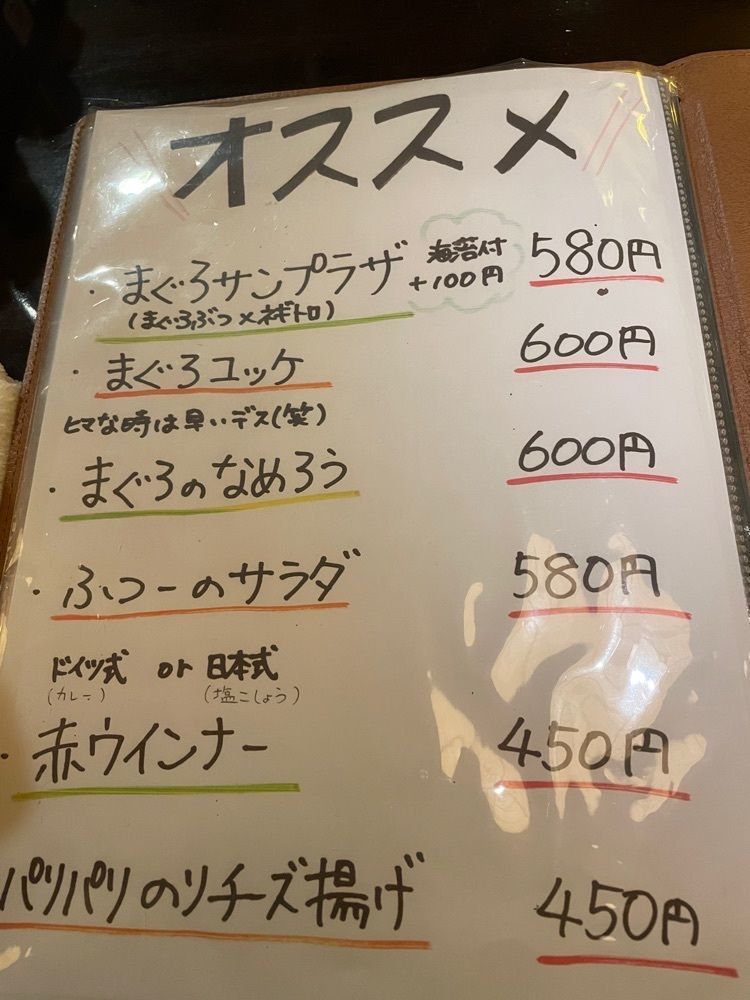 オススメ
・まぐろサンプラザ 海苔付 +100円 580円
(まぐろぶつ×ネギトロ)
・まぐろユッケ 600円
ヒマな時は早いデス(笑)
・まぐろのなめろう 600円
・ふつーのサラダ 580円
ドイツ式 or 日本式
(カレー) (塩こしょう)
・赤ウインナー 450円
パリパリのりチーズ揚げ 450円